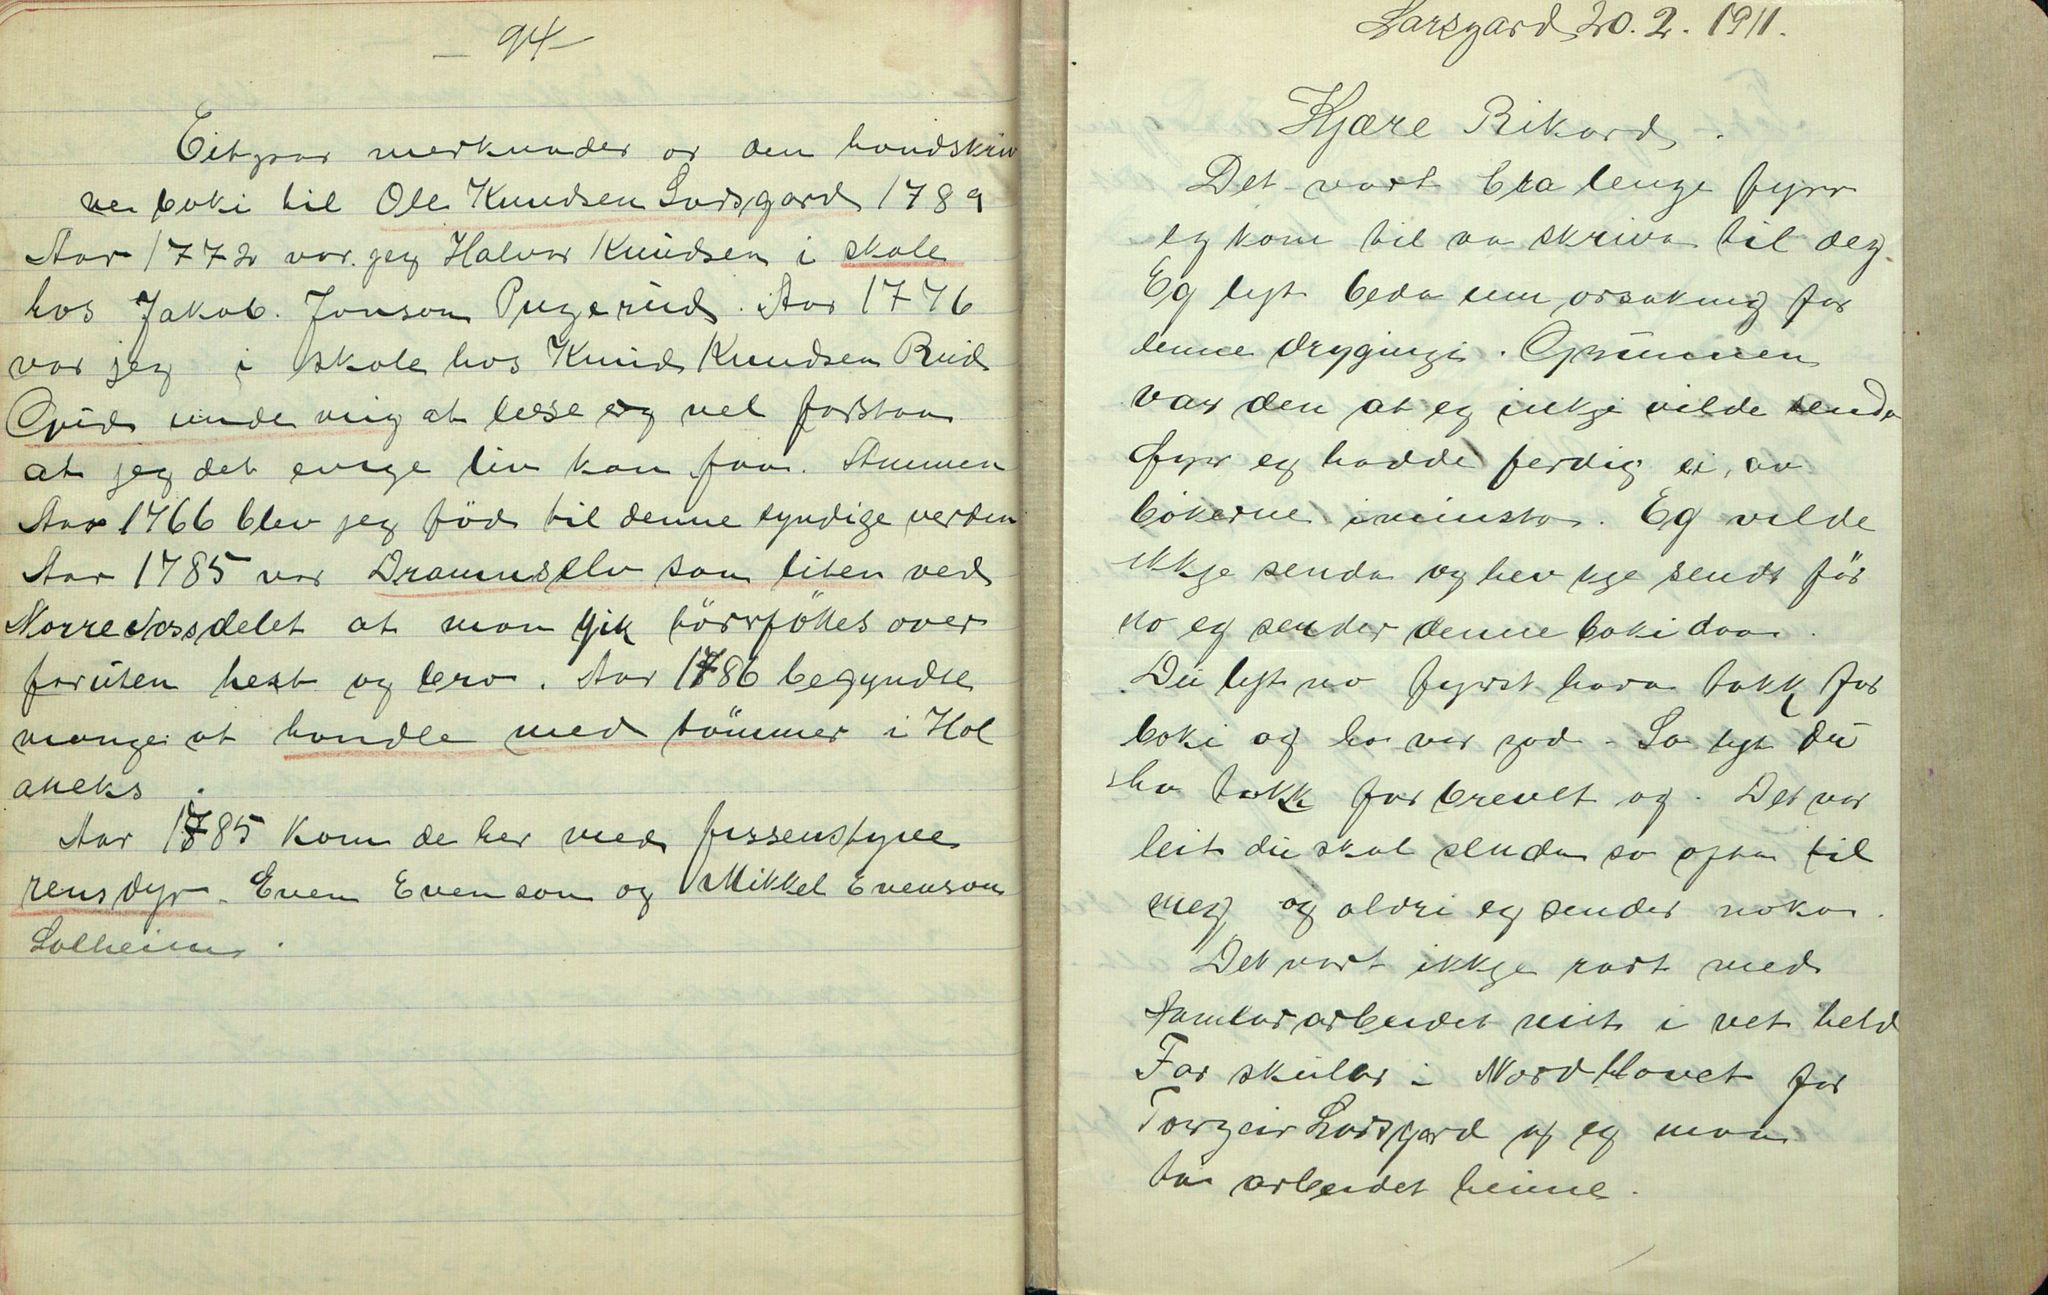 – 94 –
Eitpar merknader or den handskriv
ne boki til Ole Knudsen Larsgard 1789
Aar 1772 var jeg Halvor Knudsen i skole
hos Jakob Jonson Pugerud. Aar 1776
var jeg i skole hos Knud Knudsen Rud
Gud unde mig at lese og vel forstaa
at jeg det evige liv kan faa. Ammen
Aar 1766 blev jeg fød til denne syndige verden
Aar 1785 var Dramselv saa liten ved
Norre at man gik tørrføttes over
foruten hest og bro. Aar 1786 begyndte
mange at handle med tømmer i Hol
aneks.
Aar 1785 kom de her med
rensdyr. Even Evenson og Mikkel Evenson
Solheim.
Larsgard 20.2.1911.
Kjære Rikard.
Det vart bra lenge fyrr
eg kom til aa skriva til deg.
Eg lyt beda um orsaking for
denne drygingi. Grunnen
var den at eg inkje vilde senda
fyrr eg hadde ferdig ei av
bökerne iminsto. Eg vilde
ikkje senda og hev kje sendt för
no eg sender denne boki daa.
Du lyt no fyrst hava takk for
boki og ho var god. So lyt du
ha takk for brevet og. Det var
leit du skal senda so ofta til
meg og aldri eg sender noko.
Det vart ikkje rart med
samlararbeidet mit i vet held
Far skular i Nord Hovet for
Torgeir Larsgard og eg maa
ta arbeidet heime.